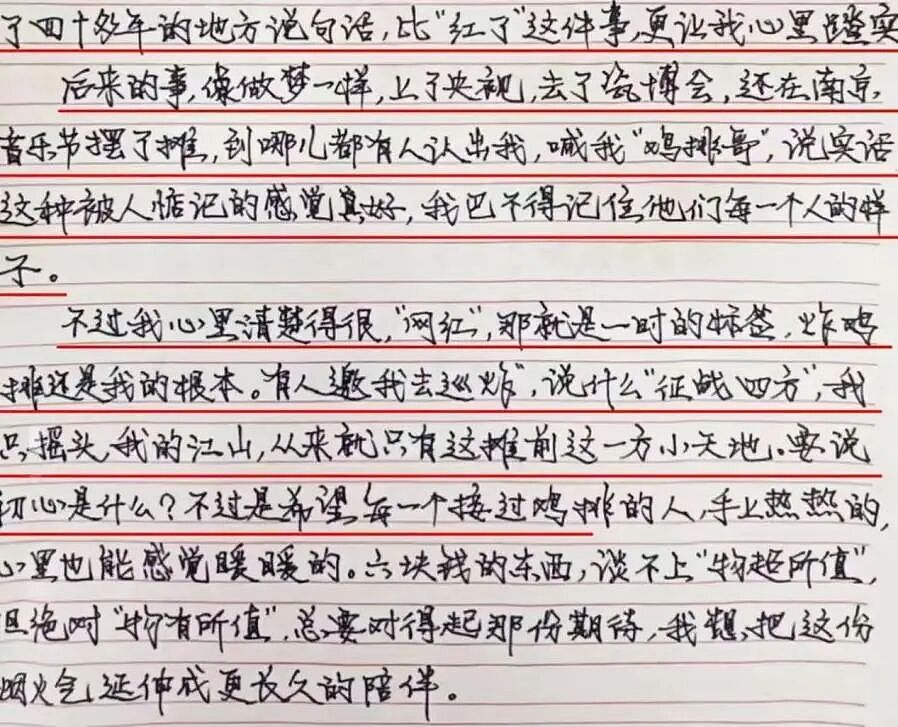 了四十多年的地方说句话,比“红了”这件事,更让我心里踏实
后来的事,像做梦一样,上了央视,去了瓷博会,还在南京
音乐节摆了摊,到哪儿都有人认出我,喊我“鸡排哥”,说实话
这种被人惦记的感觉真好,我巴不得记住他们每一个人的样
子。
不过我心里清楚得很,“网红”,那就是一时的标签,炸鸡
排还是我的根本。有人邀我去巡炸”,说什么“征战四方”,我
只摇头,我的江山,从来就只有这摊前这一方小天地。要说
初心是什么?不过是希望每一个接过鸡排的人,手上热热的,
心里也能感觉暖暖的。六块钱的东西,谈不上“物超所值”,
但绝对“物有所值”,总要对得起那份期待,我想,把这份
烟火气延伸成更长久的陪伴。